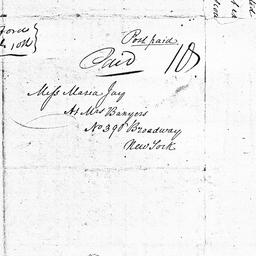 Post paid
Paid 18
Miss Maria Jay
At Mrs Banyers
No 390 Broadway
New York